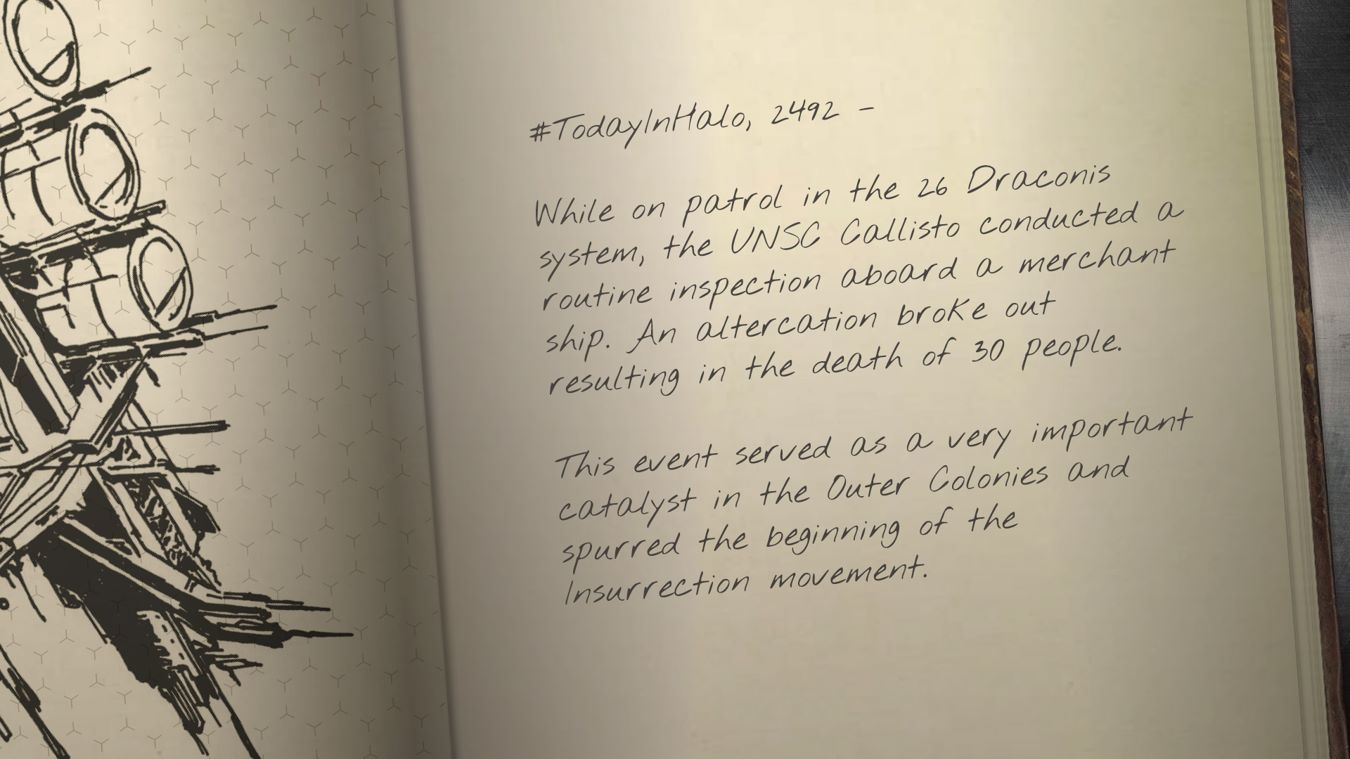 #TodayInHalo, 2492 –
While on patrol in the 26 Draconis
system, the UNSC Callisto conducted a
routine inspection aboard a merchant
ship. An altercation broke out
resulting in the death of 30 people.
This event served as a very important
catalyst in the Outer Colonies and
spurred the beginning of the
Insurrection movement.